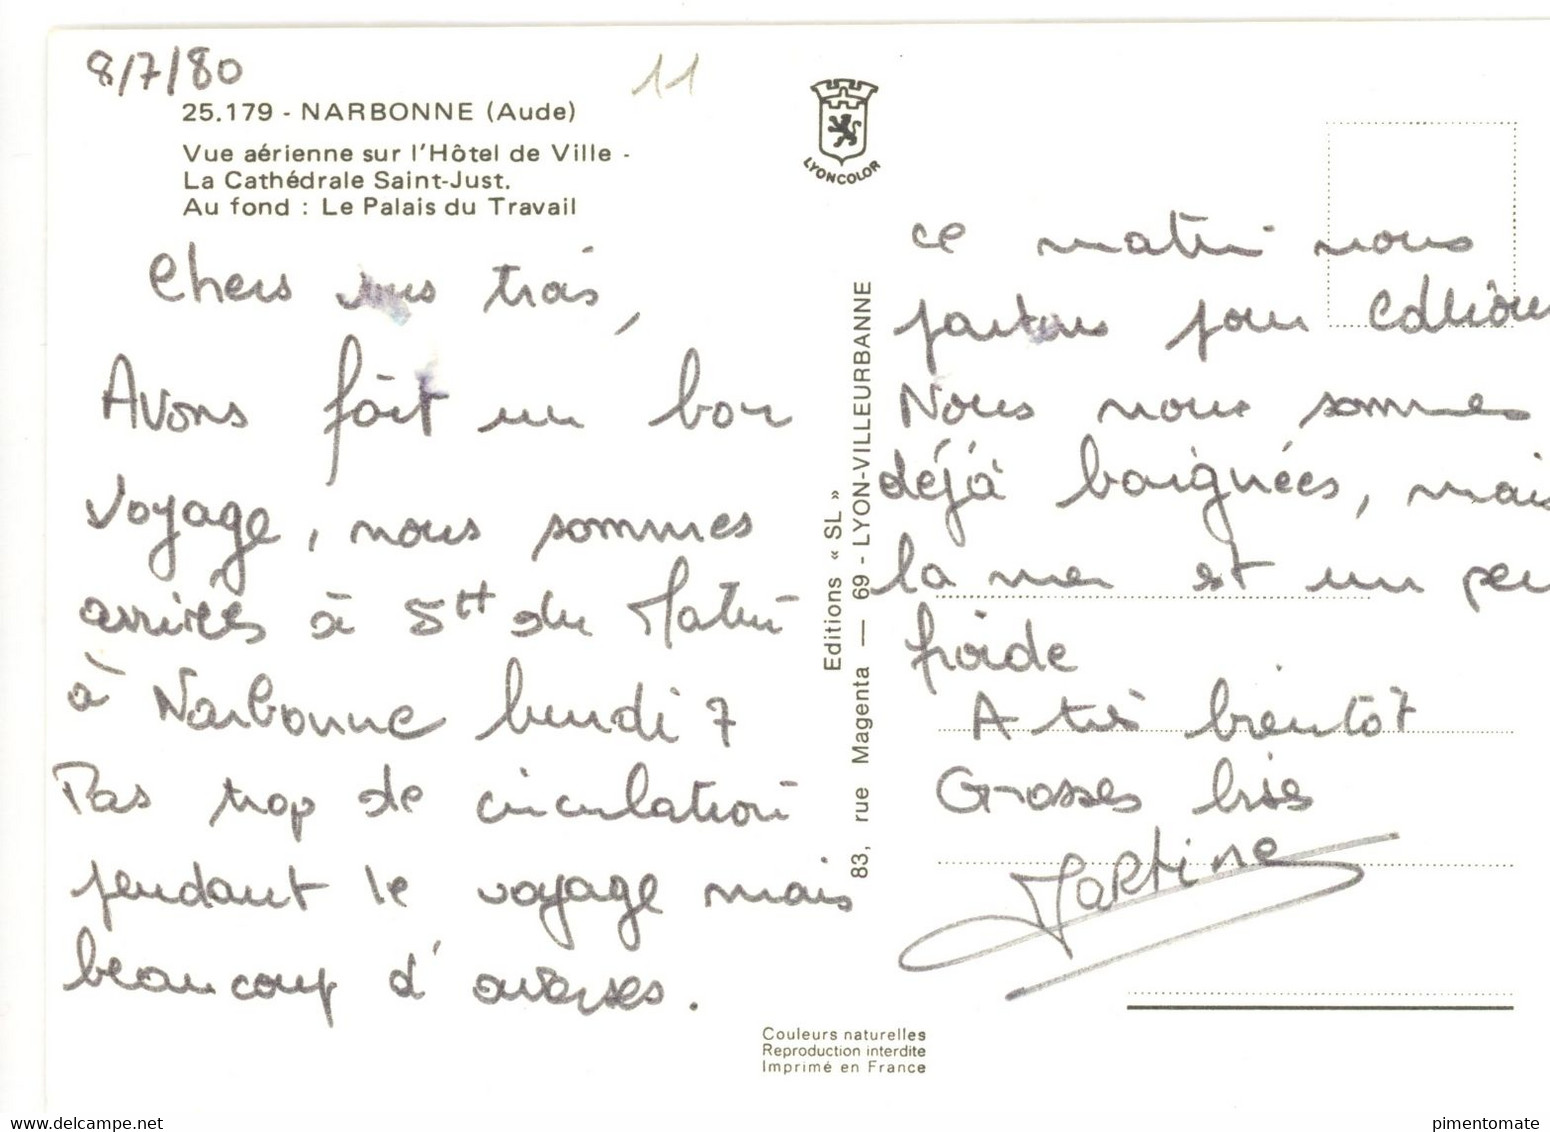 8/7/80
11
25.179 - NARBONNE (Aude)
Vue aérienne sur l'Hôtel de Ville -
La Cathédrale Saint-Just.
Au fond : Le Palais du Travail
LYONCOLOR
Chers vous trois,
Avons fait un bon
voyage, nous sommes
arrivés à 5H du Matin
à Narbonne lundi 7
Pas trop de circulation
pendant le voyage mais
beaucoup d'averses.
Editions « SL »
83, rue Magenta — 69 - LYON-VILLEURBANNE
ce matin nous
partons pour Collioure
Nous nous sommes
déjà baignées, mais
la mer est un peu
froide
A très bientôt
Grosses bises
Martine
Couleurs naturelles
Reproduction interdite
Imprimé en France
delcampe.net
pimentomate